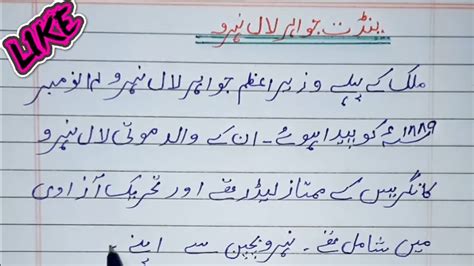 LIKE
پنڈت جواہر لال نہرو
ملک کے پہلے وزیراعظم جواہر لال نہرو ۱۴ نومبر
۱۸۸۹ء کو پیدا ہوئے۔ ان کے والد موتی لال نہرو
کانگریس کے ممتاز لیڈر تھے اور تحریک آزادی
میں شامل تھے۔ نہرو بچپن سے اپنے